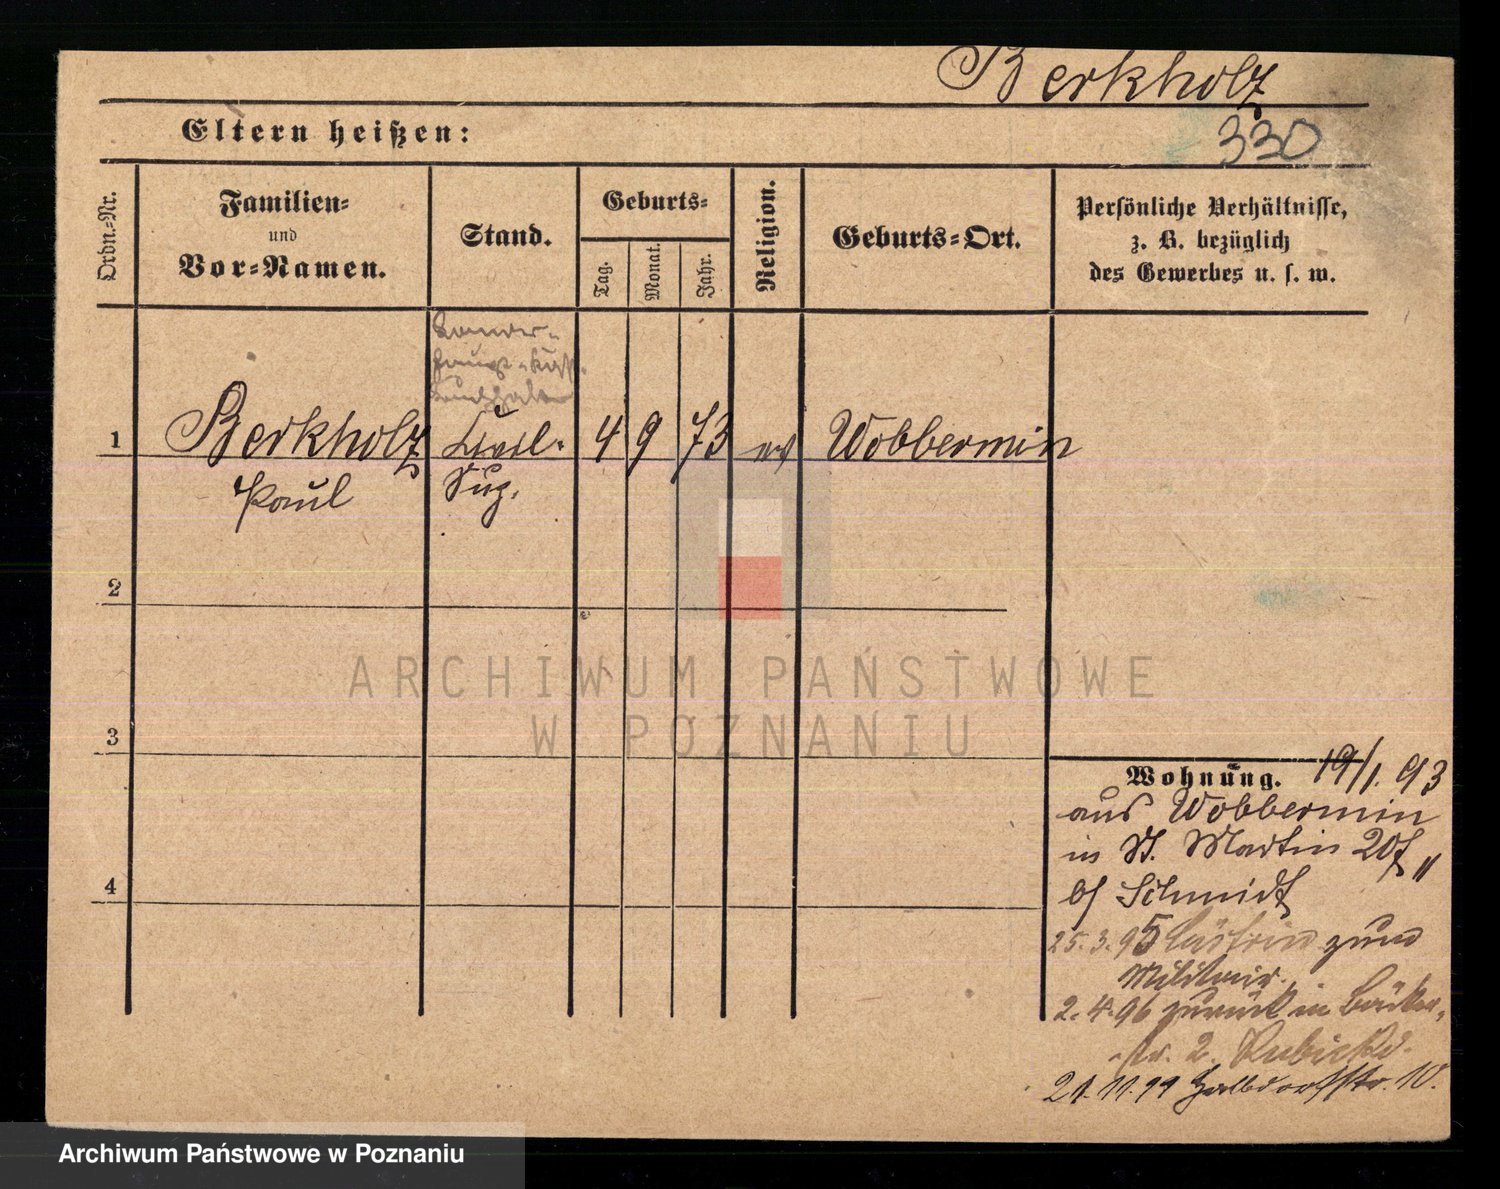 Berkholz
330
Eltern heißen:
Ordn.-Nr.
Familien-
und
Vor-Namen.
Stand.
Geburts-
Tag.
Monat.
Jahr.
Religion.
Geburts-Ort.
Persönliche Verhältnisse,
z. B. bezüglich
des Gewerbes u. s. w.
1
Berkholz
Paul
4 9 73 ev Wobbermin
2
3
4
Wohnung. 19/1. 93
aus Wobbermin
in St. Martin 20
b/ Schmidt
25.3.95 Cüstrin zum
Militair.
2.4.96 zurück in Bäcker-
str. 2.
21.11.99 Halbdorfstr. 10.
ARCHIWUM PAŃSTWOWE
W POZNANIU
Archiwum Państwowe w Poznaniu